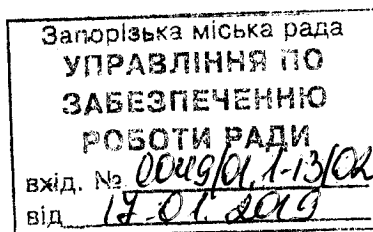 Запорізька міська рада
УПРАВЛІННЯ ПО
ЗАБЕЗПЕЧЕННЮ
РОБОТИ РАДИ
вхід. № 0049/01.1-13/02
від 17.01.2019